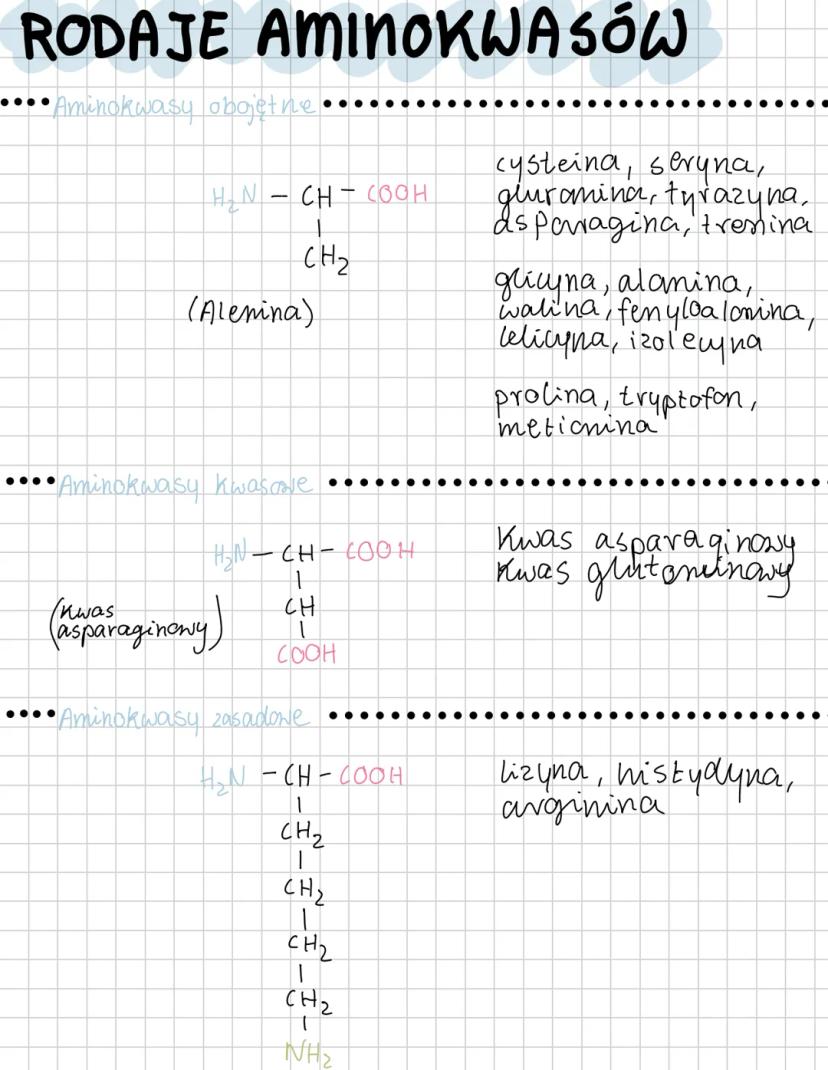 RODAJE AMINOKWASÓW
Aminokwasy obojętne
H₂N - CH - COOH
|
CH₂
(Alenina)
cysteina, seryna,
gluromina, tyrazyna,
asparagina, trenina
glicyna, alanina,
walina, fenyloalanina,
lelicyna, izolecyna
prolina, tryptofon,
metionina
Aminokwasy kwasowe
H₂N - CH - COOH
|
CH
|
COOH
(kwas
asparaginowy)
Kwas asparaginowy
Kwas glutominowy
Aminokwasy zasadowe
H₂N - CH - COOH
|
CH₂
|
CH₂
|
CH₂
|
CH₂
|
NH₂
lizyna, histydyna,
arginina